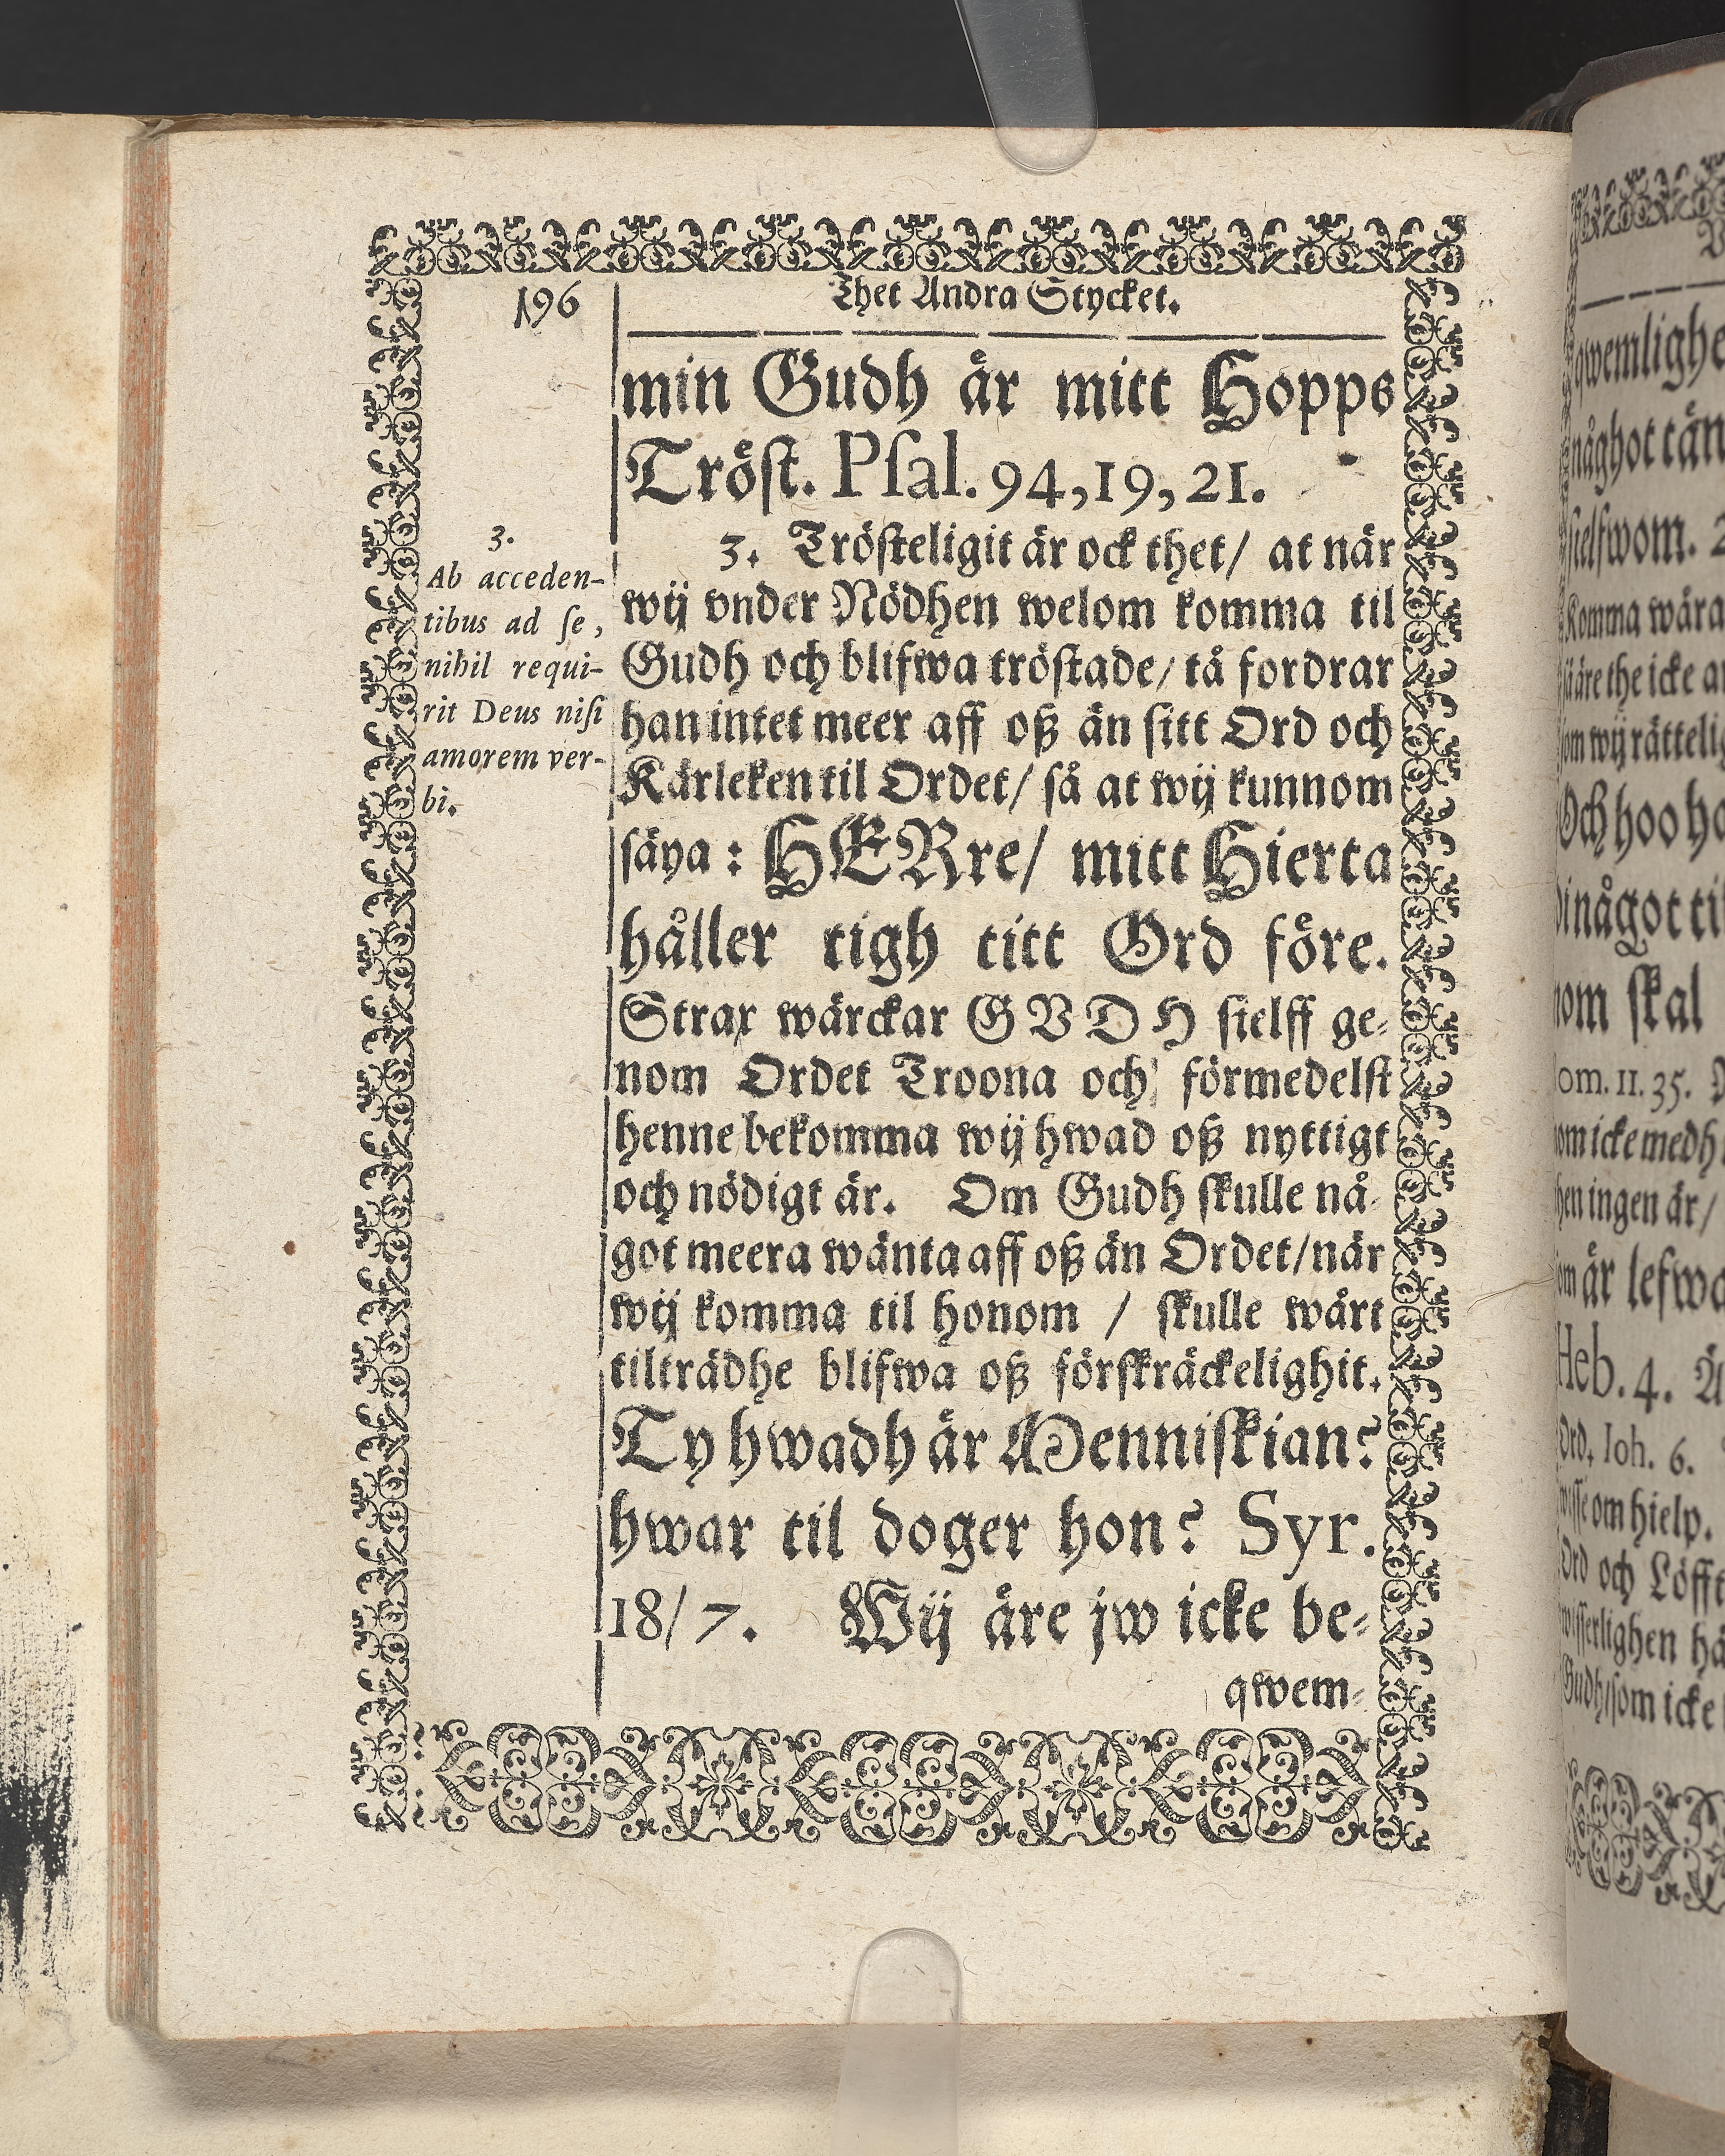 196
Thet Andra Stycket.
min Gudh är mitt Hopps
Tröst. Psal. 94,19,21.
3. Trösteligit är ock thet/ at när
wij vnder Nödhen welom komma til
Gudh och blifwa tröstade/ tå fordrar
han intet meer aff oß än sitt Ord och
Kärleken til Ordet/ så at wij kunnom
säya: HERre/ mitt Hierta
håller tigh titt Ord före.
Strax wärckar GVDH sielff ge-
nom Ordet Troona och förmedelst
henne bekomma wij hwad oß nyttigt
och nödigt är. Om Gudh skulle nå-
got meera wänta aff oß än Ordet/när
wij komma til honom / skulle wårt
tilträdhe blifwa oß förskräckelighit.
Ty hwadh är Menniskian?
hwar til doger hon? Syr.
18/7. Wij äre jw icke be-
qwem-
3.
Ab acceden-
tibus ad se,
nihil requi-
rit Deus nisi
amorem ver-
bi.
qwemlighe
någhot tän
sielfwom. 2
Komma wåra
om wij rättelig
Och hoo ha
nom skal
om. 11. 35.
om icke medh
hen ingen är/
om är lefwa
Heb. 4.
Ord. Ioh. 6.
wisse om hielp.
Ord och Löfft
wisserlighen hå
Gudh/som icke